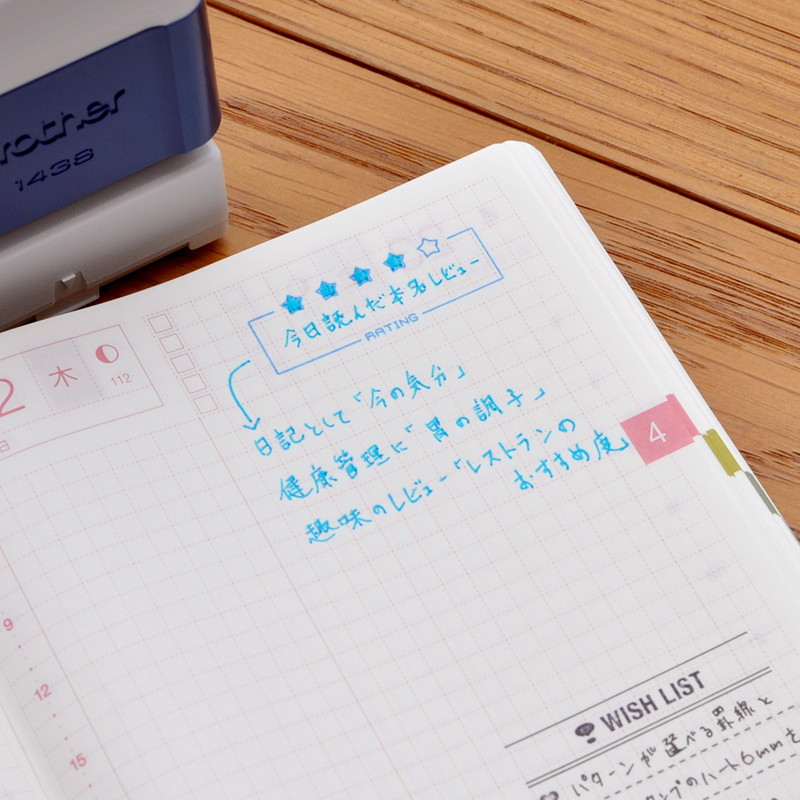 brother
1438
今日読んだ本名レビュー
RATING
2
木
112
日
日記として「今の気分」
健康管理に「胃の調子」
趣味のレビュー「レストランの
おすすめ度」
4
9
12
15
WISH LIST
パターンが並べる罫線と
タンプのハート6mmを